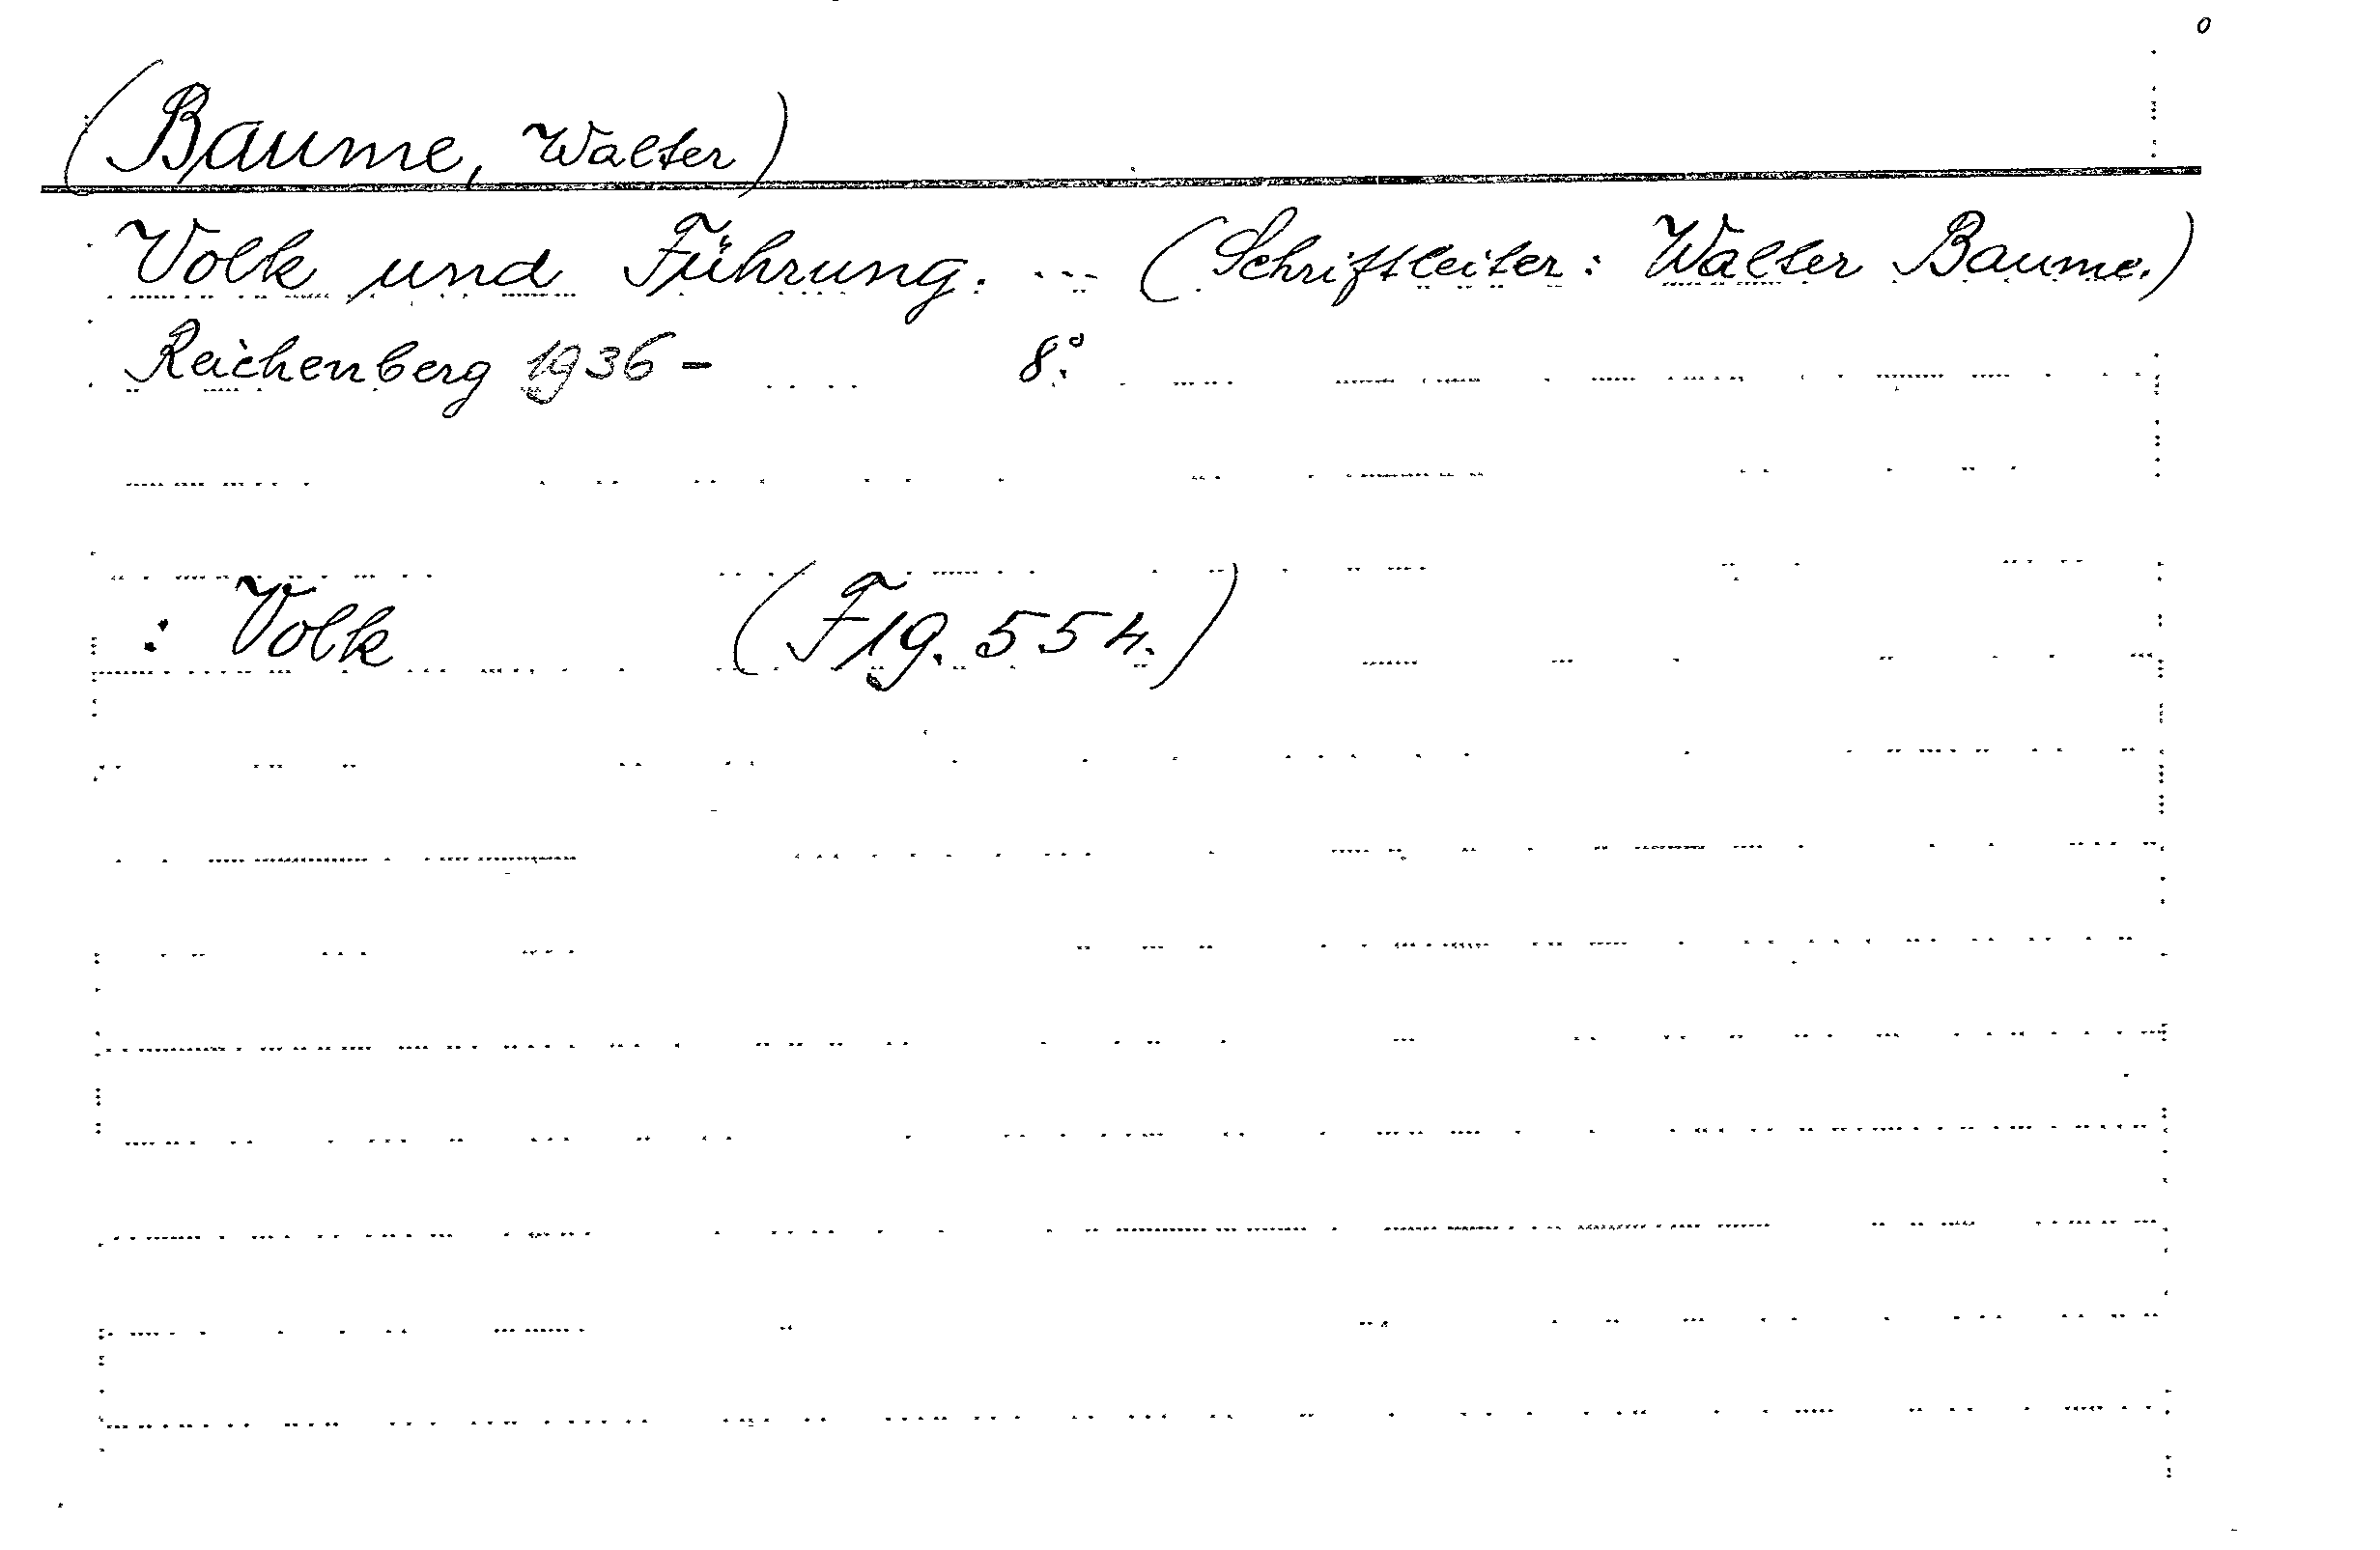 (Baume, Walter)
Volk und Führung. --- (Schriftleiter: Walter Baume.)
Reichenberg 1936 - 8°.
: Volk (F19.554.)